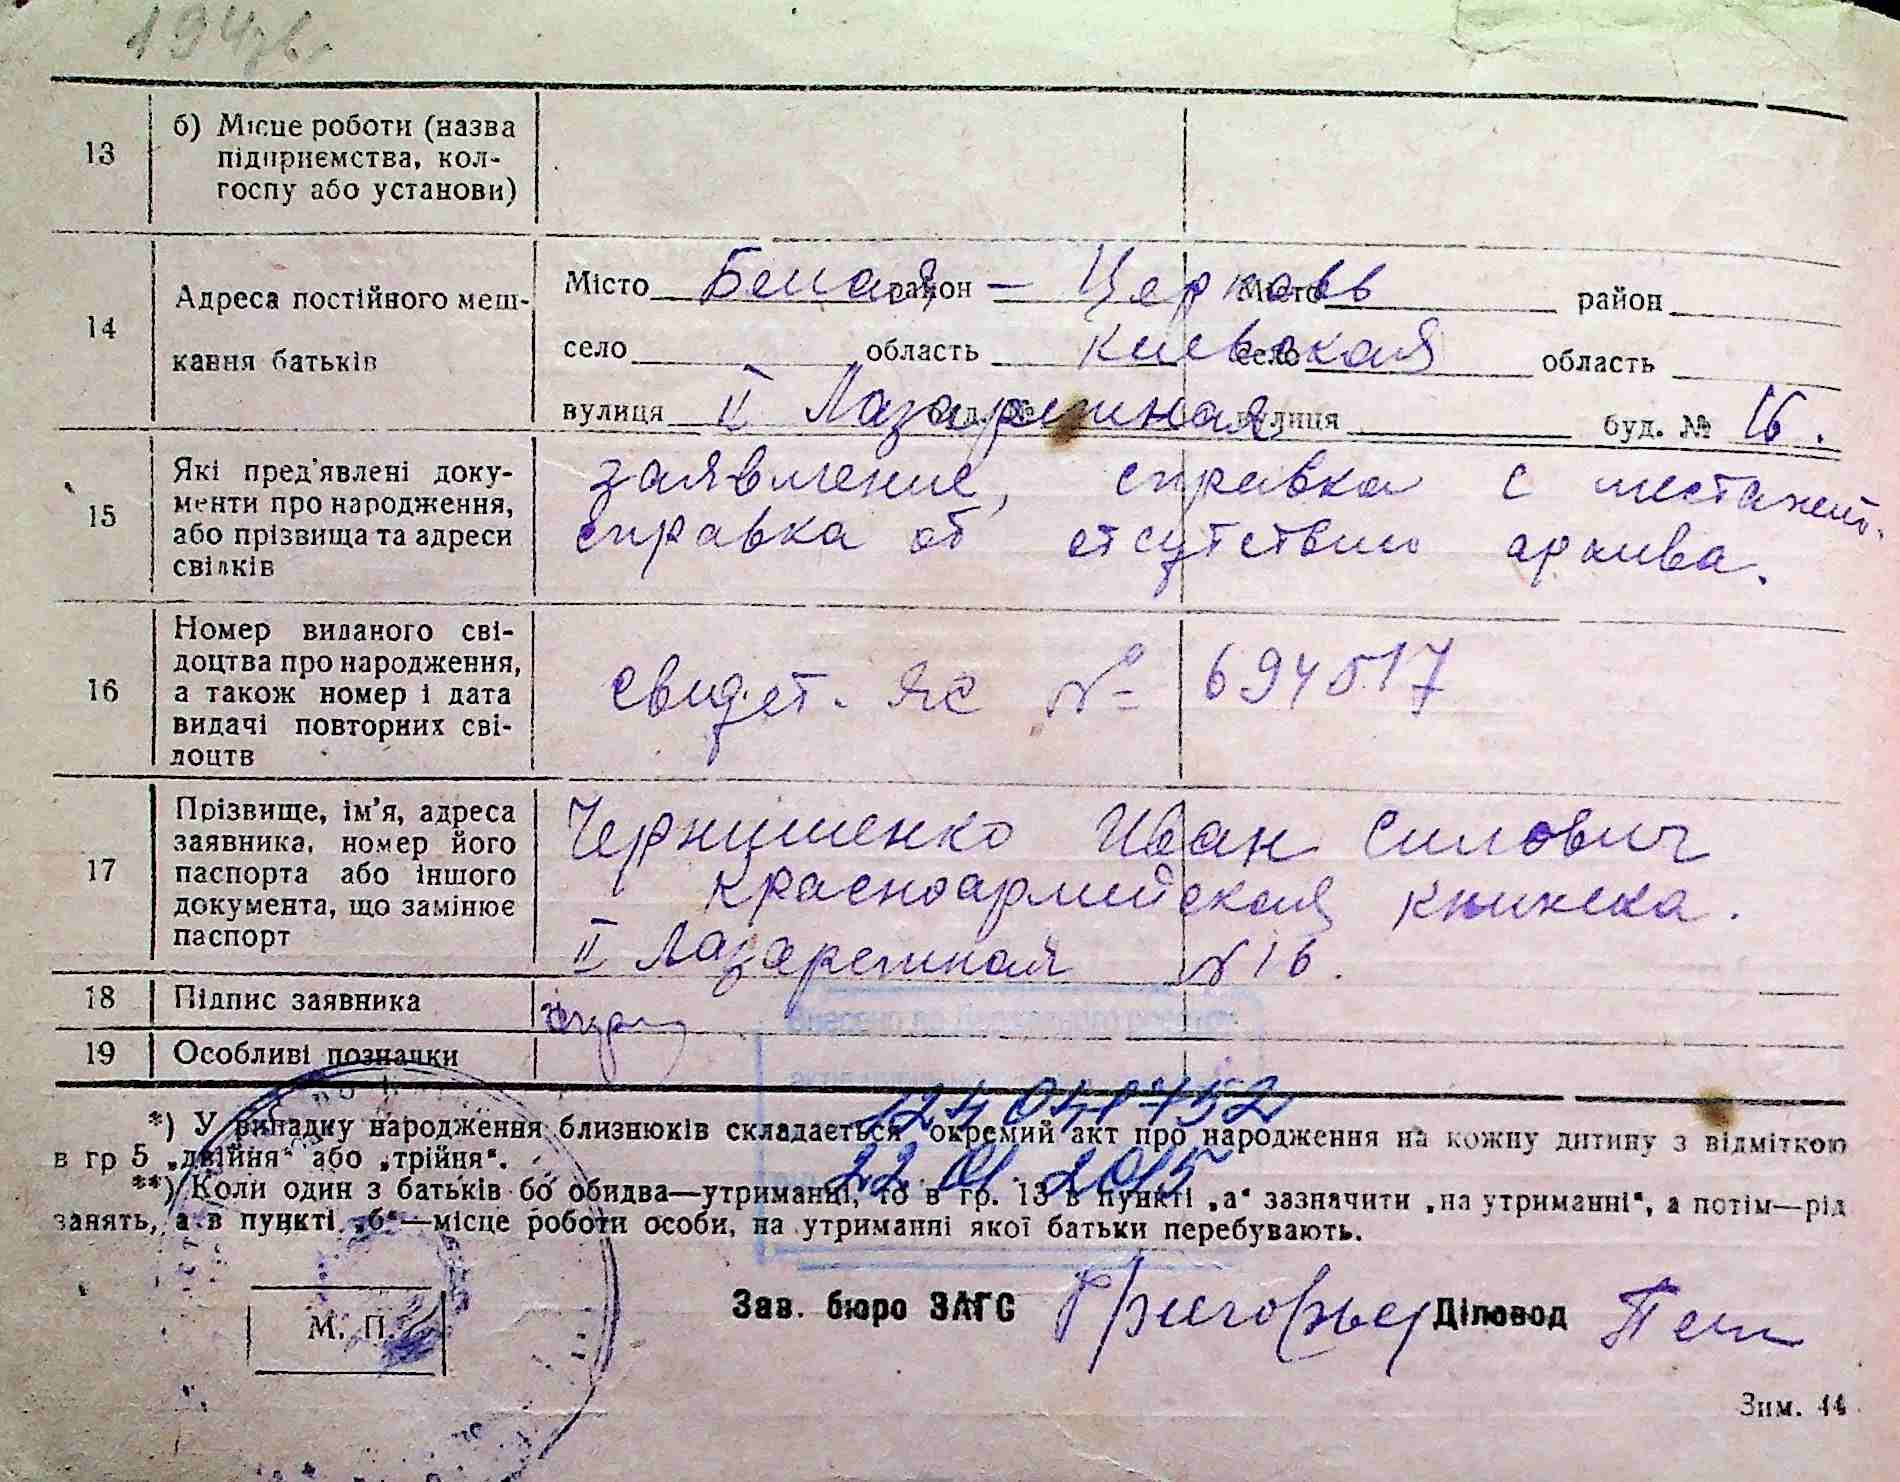 13 б) Місце роботи (назва
підприємства, кол-
госпу або установи)
14 Адреса постійного меш-
кання батьків
Місто Белая район – Церковь Місто район
село область Киевская село область
вулиця II Лазаретная буд. № вулиця буд. № 16.
15 Які пред'явлені доку-
менти про народження,
або прізвища та адреси
свідків
заявление, справка с
справка об отсутствии архива.
16 Номер виданого сві-
доцтва про народження,
а також номер і дата
видачі повторних сві-
доцтв
свидет. ЯС № 694517
17 Прізвище, ім'я, адреса
заявника, номер його
паспорта або іншого
документа, що замінює
паспорт
Чернишенко Иван Силович
красноармейская книжка.
II Лазаретная № 16.
18 Підпис заявника
19 Особливі позначки
*) У випадку народження близнюків складається окремий акт про народження на кожну дитину з відміткою
в гр 5 „двійня“ або „трійня“.
22.01.2015
**) Коли один з батьків бо обидва—утриманні, то в гр. 13 в пункті „а“ зазначити „на утриманні“, а потім—рід
занять, а в пункті „б“—місце роботи особи, на утриманні якої батьки перебувають.
М. П.
Зав. бюро ЗАГС Діловод
Зим. 44